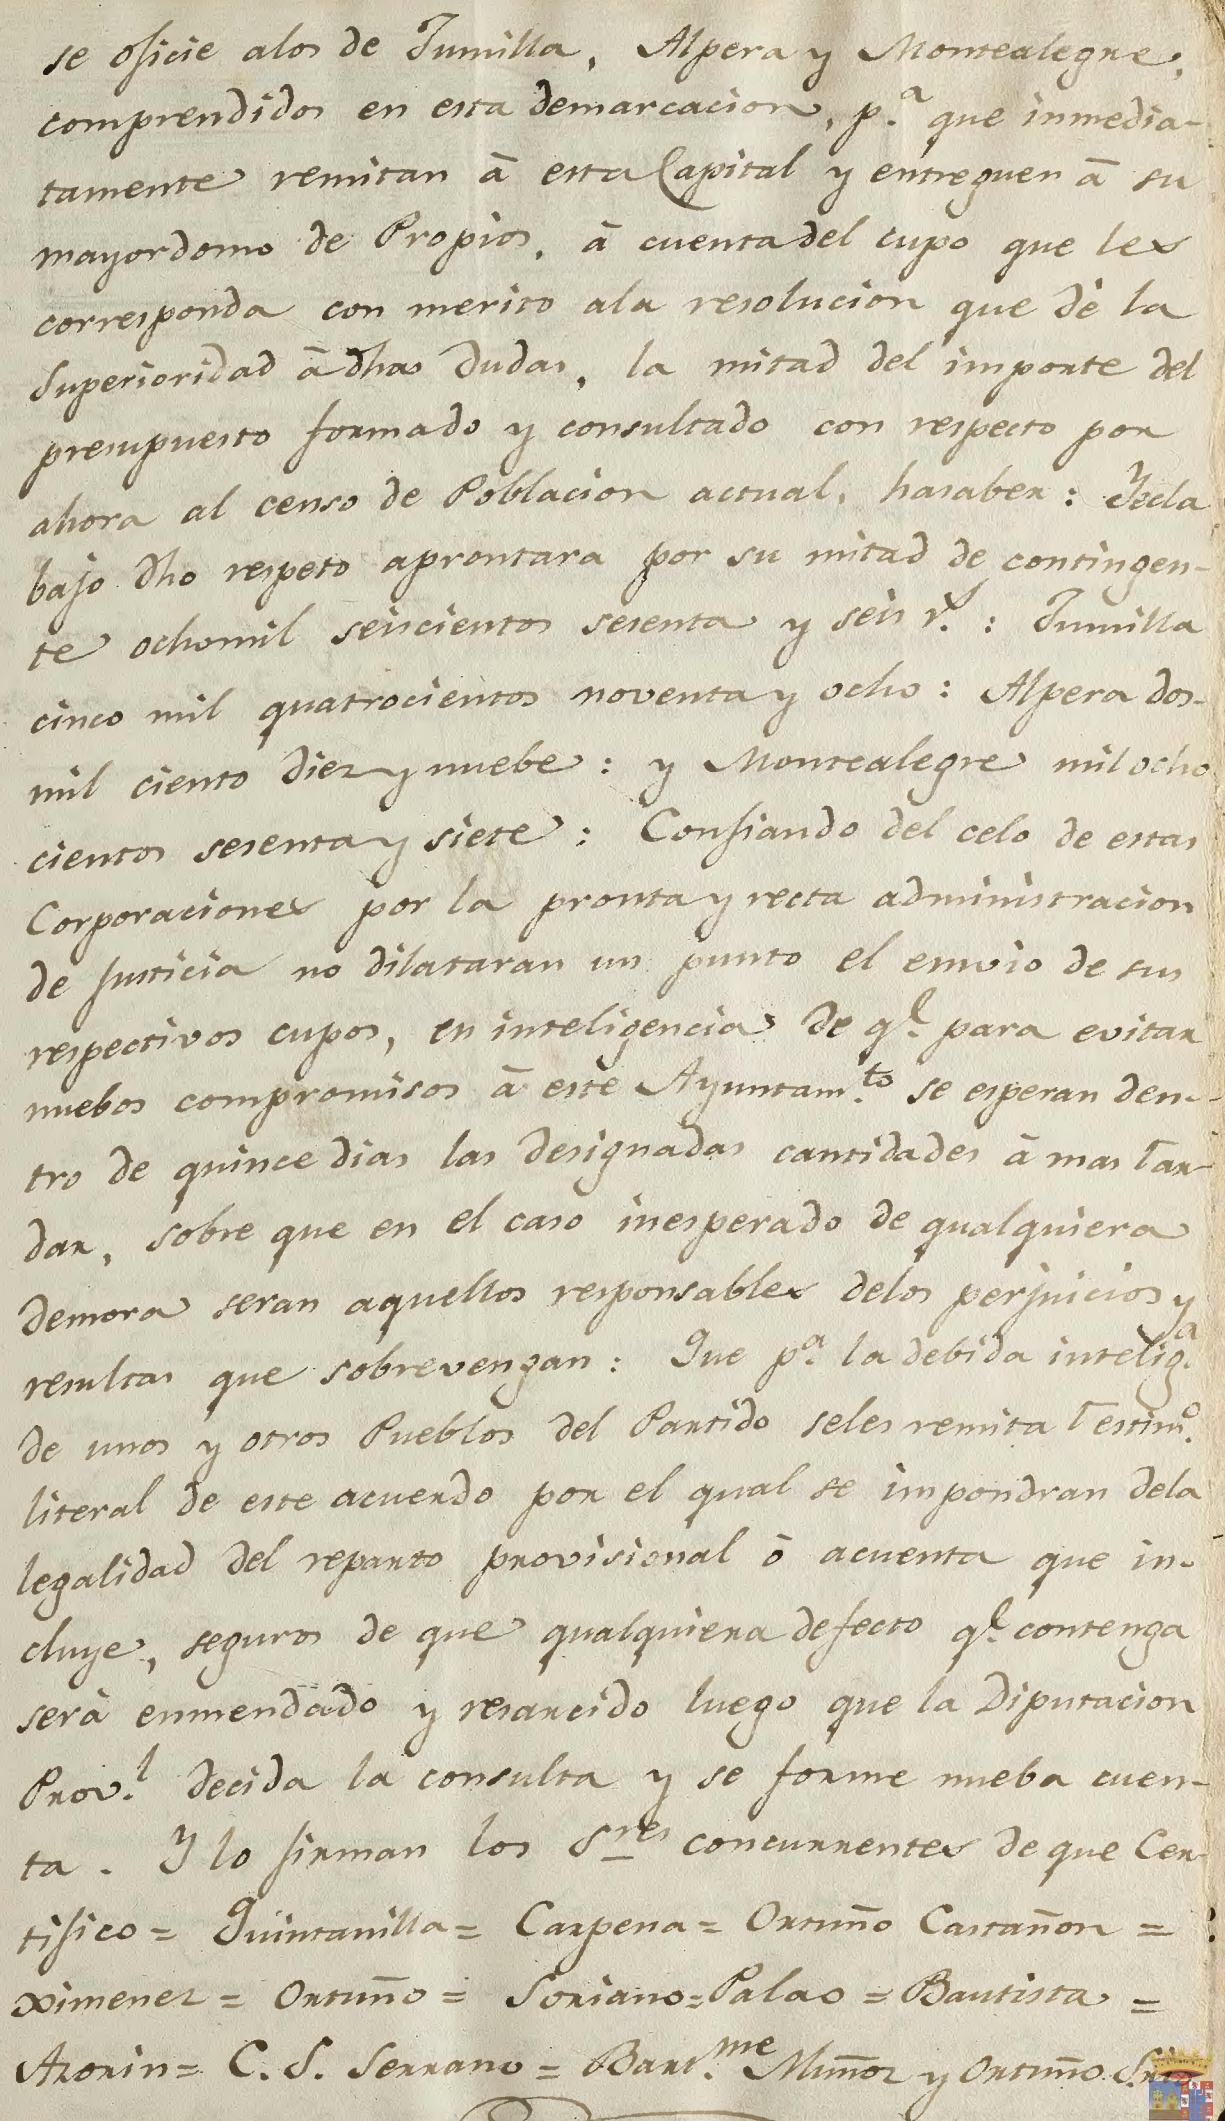 se oficie alos de Jumilla, Alpera y Montealegre,
comprendidos en esta demarcacion, p.ª que inmedia-
tamente remitan â esta Capital y entreguen â su
mayordomo de Propios, â cuenta del cupo que les
corresponda con merito ala resolucion que dé la
Superioridad â dhas dudas, la mitad del importe del
presupuesto formado y consultado con respecto por
ahora al censo de Poblacion actual, hasaber: Yecla
bajo dho respeto aprontara por su mitad de contingen-
te ochomil seiscientos sesenta y seis r.s: Jumilla
cinco mil quatrocientos noventa y ocho: Alpera dos-
mil ciento diez y nuebe: y Montealegre mil ocho
cientos sesenta y siete: Confiando del celo de estas
Corporaciones por la pronta y recta administracion
de Justicia no dilataran un punto el envio de sus
respectivos cupos, en inteligencia de q.e para evitar
nuebos compromisos â este Ayuntam.to se esperan den-
tro de quince dias las designadas cantidades â mas tar-
dar, sobre que en el caso inesperado de qualquiera
demora seran aquellos responsables delos perjuicios y
resultas que sobrevengan: Que p.ª la debida intelig.ª
de unos y otros Pueblos del Partido seles remita testim.º
literal de este acuerdo por el qual se impondran dela
legalidad del reparto provisional ô acuenta que in-
cluye, seguros de que qualquiera defecto q.e contenga
serà enmendado y resarcido luego que la Diputacion
Prov.l decida la consulta y se forme nueba cuen-
ta. Y lo firman los S.res concurrentes de que Cer-
tifico = Quintanilla = Carpena = Ortuño Castañon =
Ximenez = Ortuño = Soriano = Palao = Bautista =
Azorin = C. S. Serrano = Bart.me Muñoz y Ortuño Srio